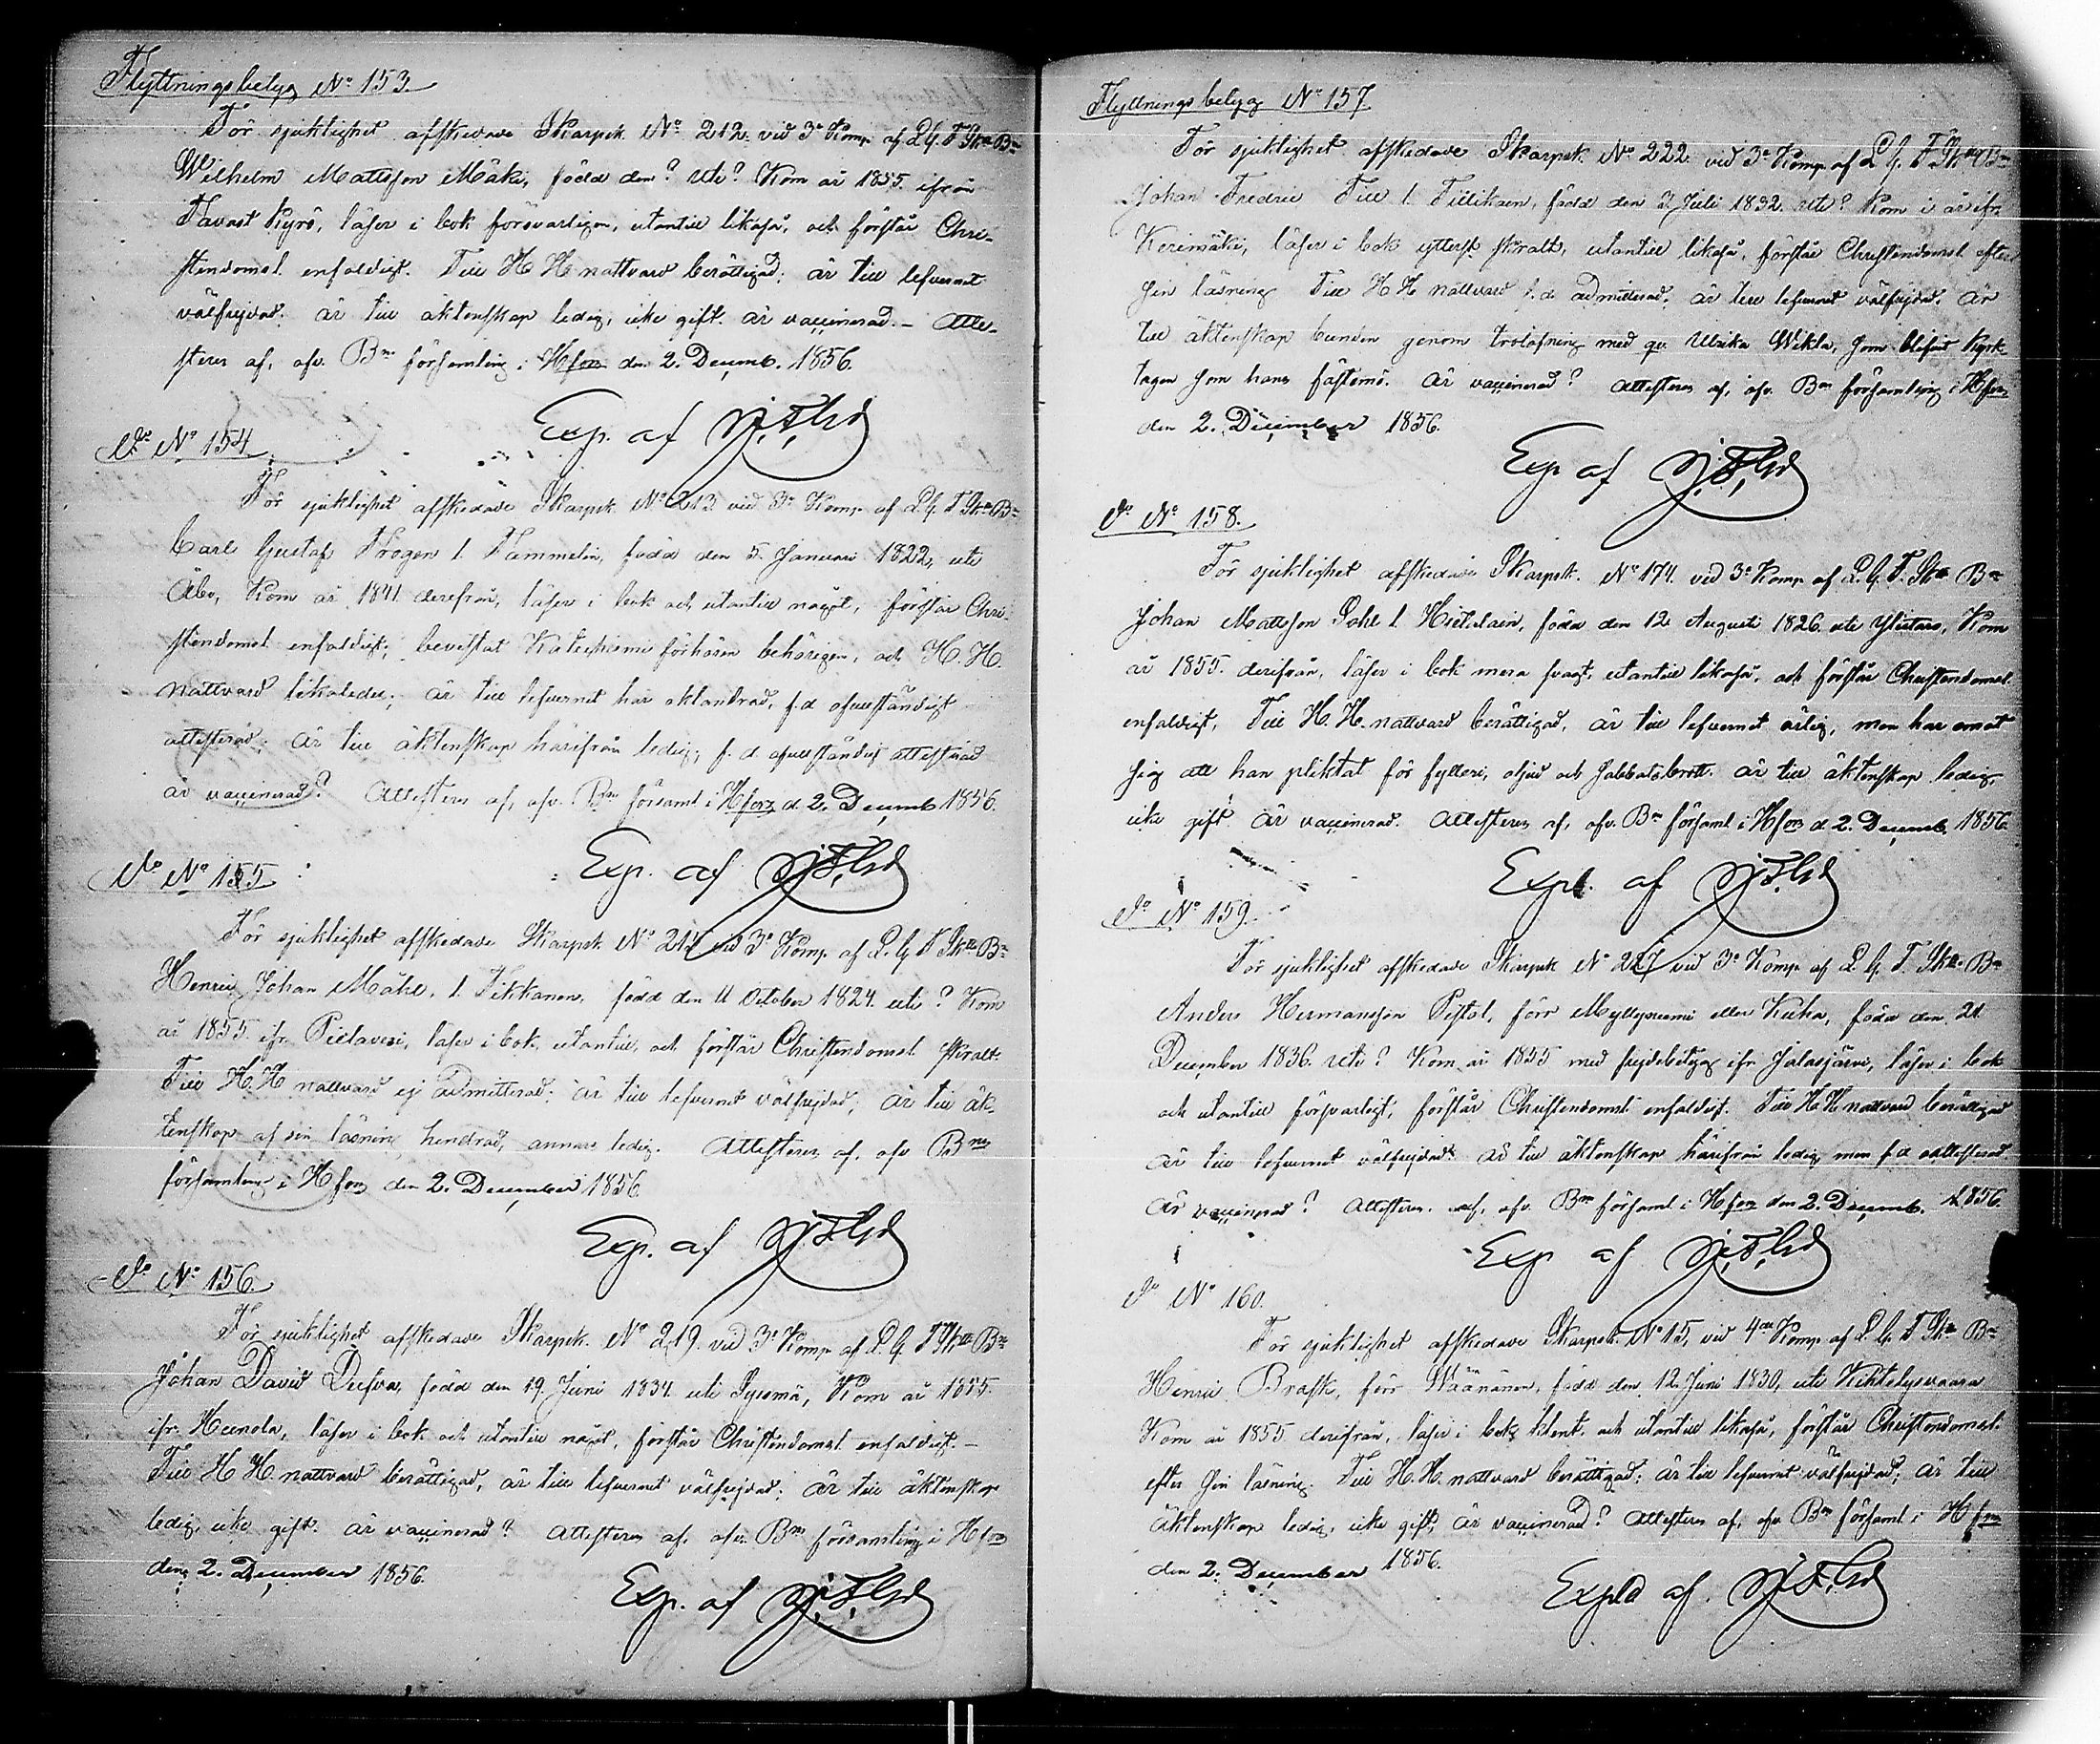 Flyttningsbetyg No 153.
För sjuklighet afskedade Skarpsk. No 212. vid 3e Komp. af L. G. F. Sk. Bn
Wilhelm Mattsson Mäki, född den? uti? Kom år 1855. ifrån
Tavast Kyro, läser i bok försvarligen, utantill likaså, och förstår Chri-
stendomst. enfaldigt. Till H H nattvard berättigad; är till lefvernet
välfrejdad. är till äktenskap ledig, icke gift. är vaccinerad. - Atte-
steras af, ofv. Bns församling i Hfors den 2. Decemb. 1856.
Exp. af
do No 154
För sjuklighet afskedade Skarpsk. No 213 vid 3e Komp. af L. G. F. Sk. Bn
Carl Gustaf Trogen l. Tammelin, född den 5. Januari 1822, uti
Åbo, Kom år 1841. derefrån, läser i bok och utantill något, förstår Chri-
stendomst. enfaldigt; bevistat Katechismi förhören behörigen, och H. H.
nattvard likaledes; är till lefvernet här oklandrad, f.d. ofullständigt
attesterad; är till äktenskap härifrån ledig; f. d. ofullständigt attesterad
är vaccinerad? Attesteras af, ofv. Bns församl. i Hfors d. 2. Decemb 1856.
Exp. af
do No 155
För sjuklighet afskedade Skarpsk. No 214 vid 3e Komp. af L. G. F. Sk. Bn
Henric Johan Mähl, l. Tikkanen, född den 11 October 1824. uti? Kom
år 1855. ifr. Pielavesi, läser i bok, utantill, och förstår Christendomst. skralt.
Till H. H nattvard ej admitterad; är till lefvernet välfrejdad; är till äk-
tenskap af sin läsning hindrad, annars ledig. Attesteras af, ofv. Bns
församling i Hfors den 2. December 1856.
Exp. af
do No 156.
För sjuklighet afskedade Skarpsk. No 219. vid 3e Komp. af L. G. F. Sk. Bn
Johan David född den 19. Juni 1834. uti Sysmä, Kom år 1855.
ifr. Heinola, läser i bok och utantill något, förstår Christendomst. enfaldigt. -
Till H H. nattvard berättigad, är till lefvernet välfrejdad; är till äktenskap
ledig, icke gift. är vaccinerad? attesteras af, ofv. Bns församling i Hfors
den 2. December 1856.
Exp. af
Flyttningsbetyg No 157.
För sjuklighet afskedade Skarpsk. No 222. vid 3e Komp. af L. G. F. Sk. Bn
Johan Fredric Till l. Tiilikain, född den 7. Juli 1832. uti? Kom i år ifr.
Kerimäki, läser i bok ytterst skralt, utantill likaså, förstår Christendomst. efter
sin läsning Till H H nattvard f. d. admitterad, är till lefvernet välfrejdad. är
till äktenskap bunden genom trolofning med qv. Ulrika Wikla, som blifvit kyrk-
tagen som hans fästemö. är vaccinerad? attesteras af, ofv. Bns församling i Hfors
den 2. December 1856.
Exp af
do No 158.
För sjuklighet afskedade Skarpsk. No 174. vid 3e Komp. af L. G. F. Sk. Bn
Johan Mattsson l. född den 12 Augusti 1826. uti Ylistaro, Kom
år 1855. derifrån, läser i bok mera svagt, utantill likaså, och förstår Christendomst.
enfaldigt, Till H. H. nattvard berättigad, är till lefvernet ärlig, men har emot
sig att han pliktat för fylleri, oljud och Sabbatsbrott. är till äktenskap ledig,
icke gift. är vaccinerad. attesteras af, ofv. Bns församl. i Hfors d. 2. Decemb. 1856.
Exp. af
do No 159.
För sjuklighet afskedade Skarpsk No 227 vid 3e Komp. af L. G. F. Sk. Bn
Anders Hermansson Pistol, förr Myllyniemi eller Kuha, född den 21
December 1836. uti? Kom år 1855 med frejdebetyg ifr. Jalasjärvi, läser i bok
och utantill försvarligt, förstår Christendomst. enfaldigt. Till H H. nattvard berättigad
är till lefvernet välfrejdad. är till äktenskap härifrån ledig, men f.d. oattesterad.
är vaccinerad? attesteras. af, ofv. Bns församl. i Hfors den 2. Decemb. 1856.
Exp af
do No 160.
För sjuklighet afskedade Skarpsk. No 15, vid 4de Komp. af L. G. F. Sk. Bn
Henric Brask, förr Wäänänen, född den 12. Juni 1830, uti Kihtelysvaara
Kom år 1855. derifrån, läser i bok klent, och utantill likaså, förstår Christendomst.
efter sin läsning. Till H. H. nattvard berättigad; är till lefvernet välfrejdad; är till
äktenskap ledig, icke gift, är vaccinerad? attesteras af, ofv. Bns församl. i Hfors
den 2. December 1856.
Exp.d af